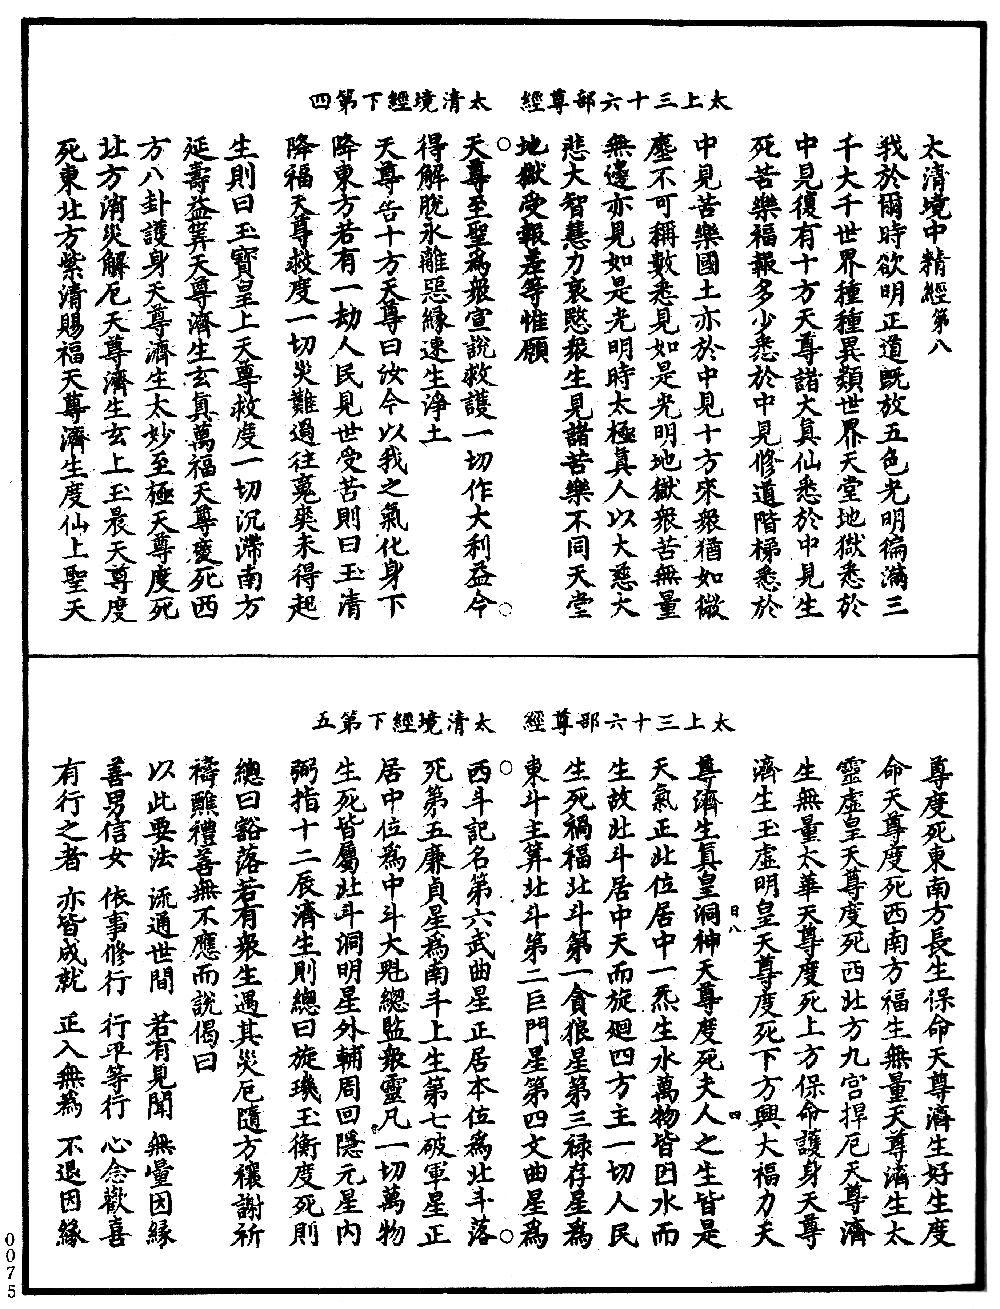 太上三十六部尊經　太清境經下第四
太清境中精經第八
我於爾時欲明正道既放五色光明徧滿三
千大千世界種種異類世界天堂地獄悉於
中見復有十方天尊諸大真仙悉於中見生
死苦樂福報多少悉於中見修道階梯悉於
中見苦樂國土亦於中見十方來眾猶如微
塵不可稱數悉見如是光明地獄眾苦無量
無邊亦見如是光明時太極真人以大慈大
悲大智慧力哀愍眾生見諸苦樂不同天堂
地獄受報差等惟願
天尊至聖為眾宣說救護一切作大利益令
得解脫永離惡緣速生淨土
天尊告十方天尊曰汝今以我之氣化身下
降東方若有一劫人民見世受苦則曰玉清
降福天尊救度一切災難過往冤魂未得起
生則曰玉寶皇上天尊救度一切沉滯南方
延壽益筭天尊濟生玄真萬福天尊度死西
方八卦護身天尊濟生太妙至極天尊度死
北方消災解厄天尊濟生玄上玉晨天尊度
死東北方紫清賜福天尊濟生度仙上聖天
太上三十六部尊經　太清境經下第五
尊度死東南方長生保命天尊濟生好生度
命天尊度死西南方福生無量天尊濟生太
靈虛皇天尊度死西北方九宮捍厄天尊濟
生無量太華天尊度死上方保命護身天尊
濟生玉虛明皇天尊度死下方興大福力天
日八　四
尊濟生真皇洞神天尊度死夫人之生皆是
天氣正北位居中一炁生水萬物皆因水而
生故北斗居中天而旋廻四方主一切人民
生死禍福北斗第一貪狼星第三祿存星為
東斗主筭北斗第二巨門星第四文曲星為
西斗記名第六武曲星正居本位為北斗落
死第五廉貞星為南斗上生第七破軍星正
居中位為中斗大魁總監眾靈凡一切萬物
生死皆屬北斗洞明星外輔周回隱元星內
弼指十二辰濟生則總曰旋璣玉衡度死則
總曰豁落若有眾生遇其災厄隨方禳謝祈
禱醮禮善無不應而說偈曰
以此要法　流通世間　若有見聞　無量因緣
善男信女　依事修行　行平等行　心念歡喜
有行之者　亦皆成就　正入無為　不退因緣
0075